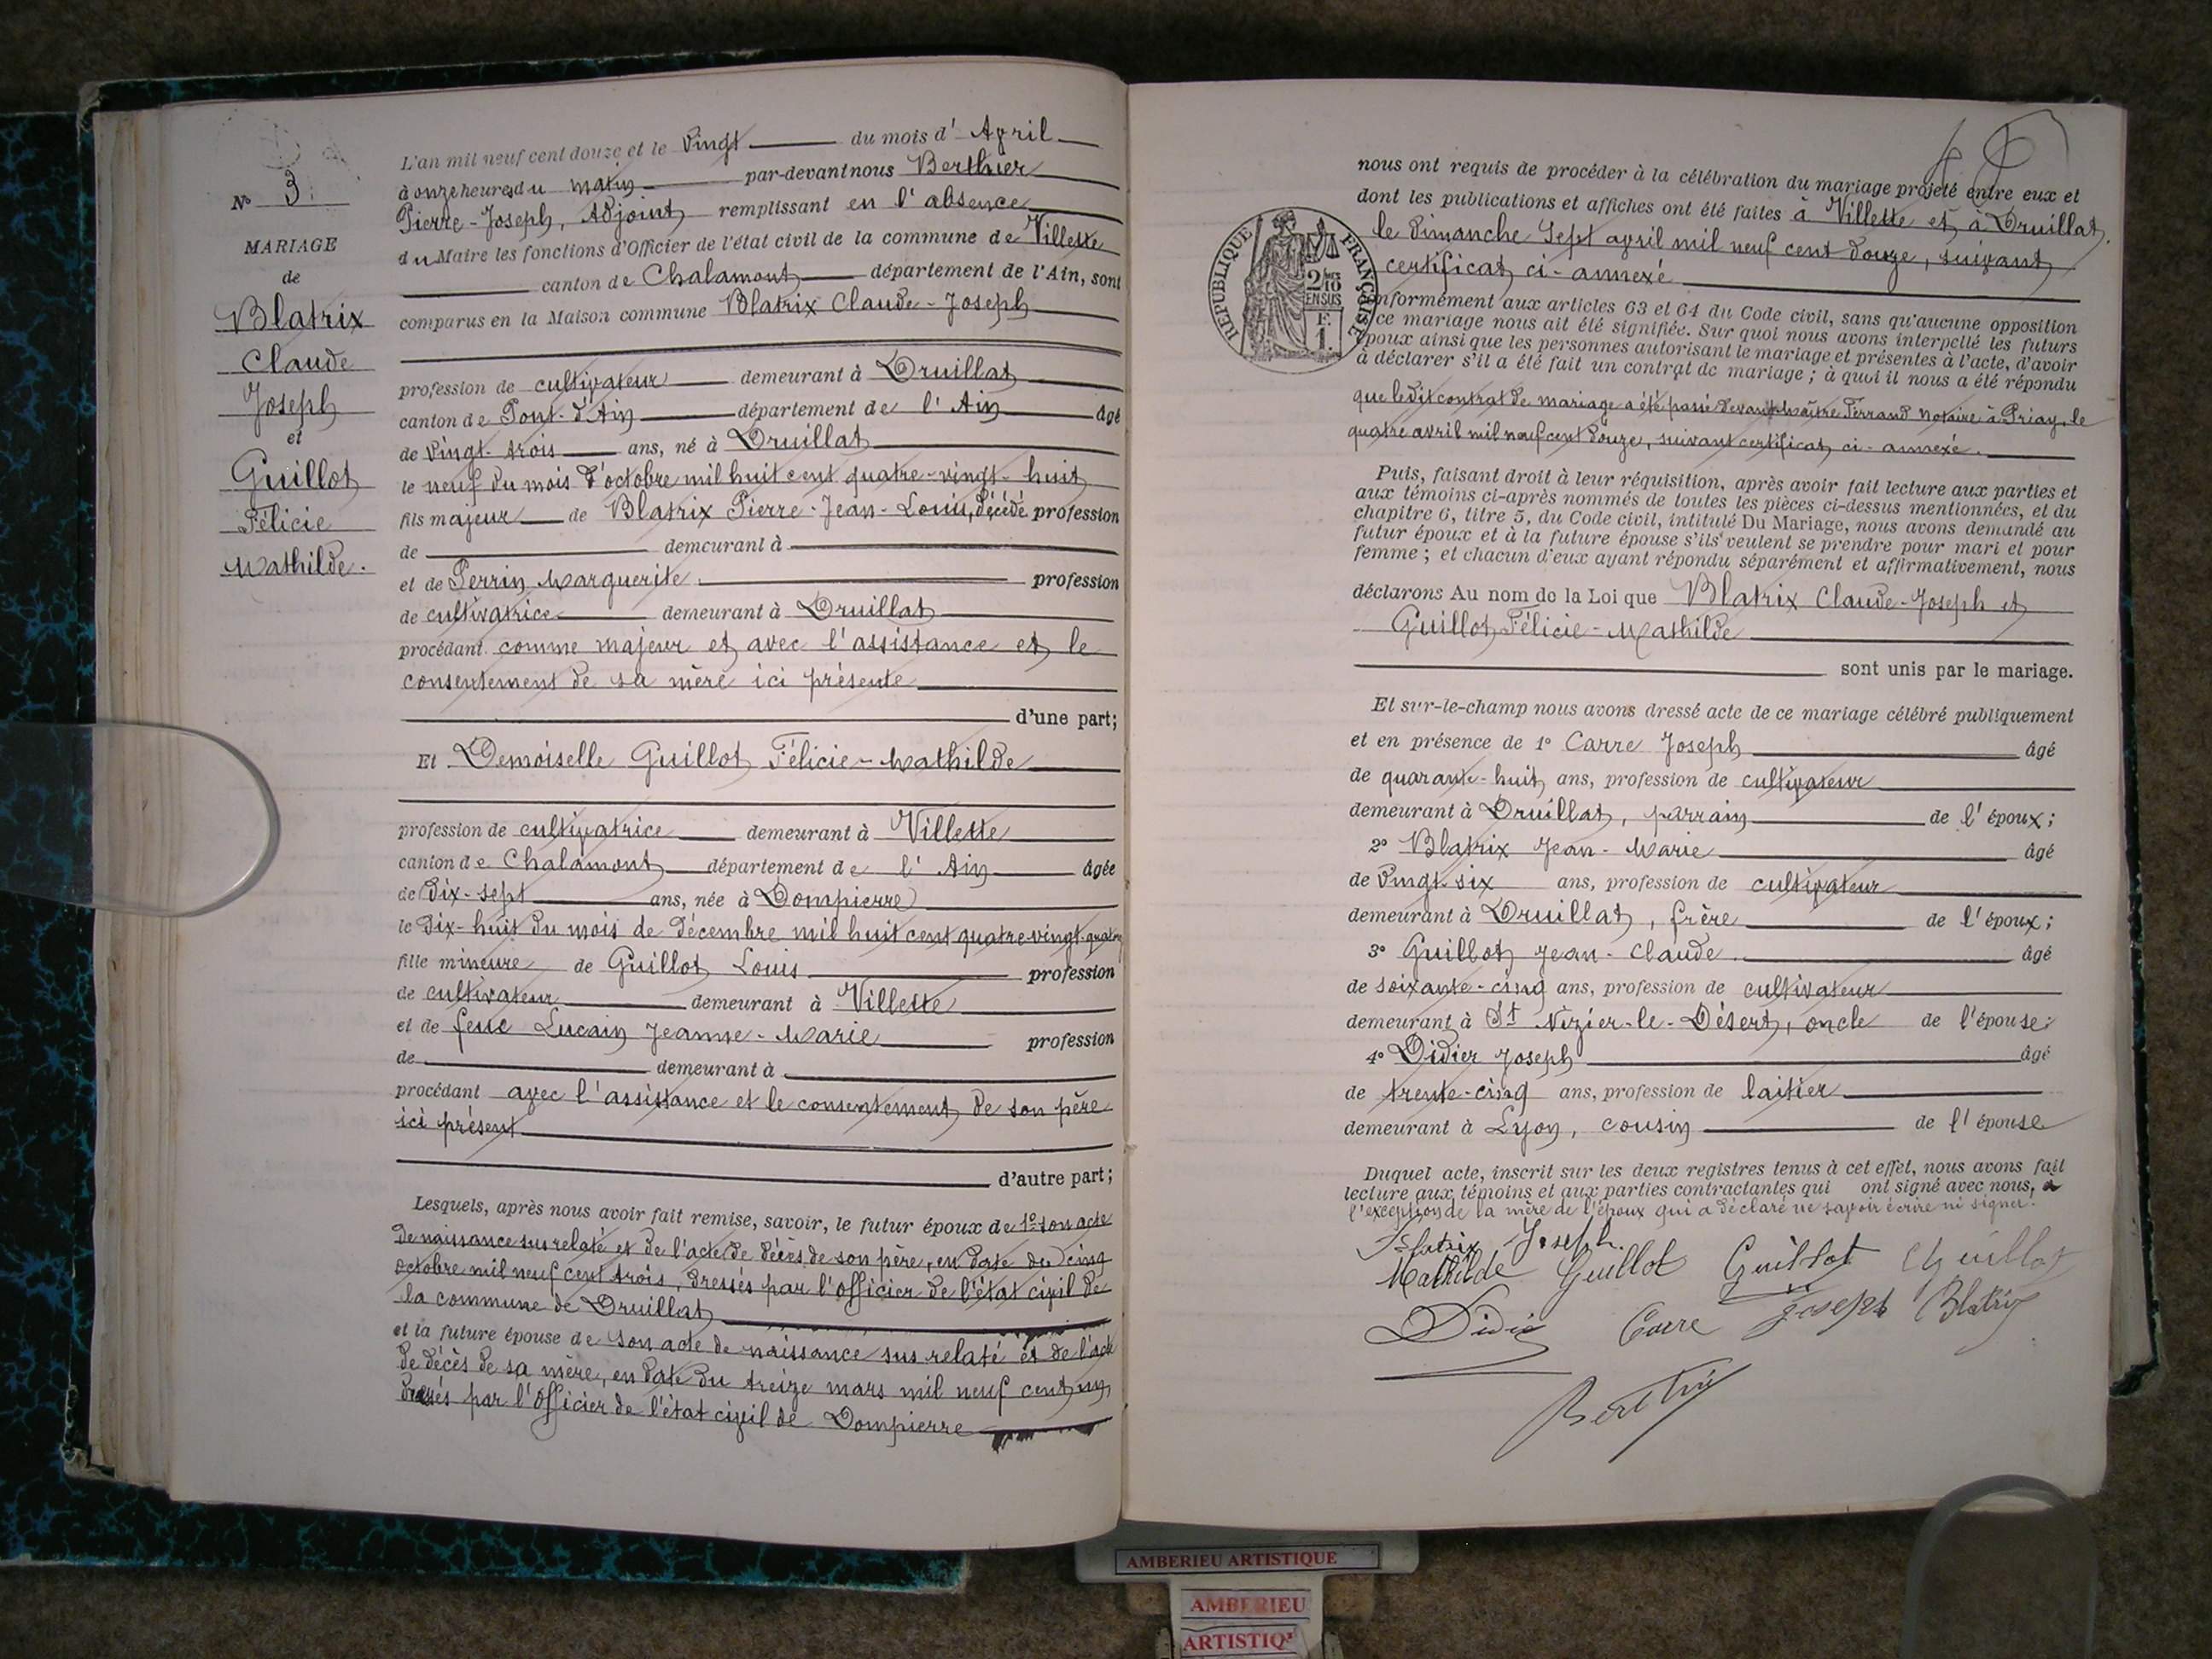 N° 3.
MARIAGE
de
Blatrix
Claude
Joseph
et
Guillot
Félicie
Mathilde.
L'an mil neuf cent douze et le vingt du mois d' Avril
à onze heures du matin par-devant nous Berthier
Pierre-Joseph, Adjoint remplissant en l'absence
du Maire les fonctions d'Officier de l'état civil de la commune de Villette
canton de Chalamont département de l'Ain, sont
comparus en la Maison commune Blatrix Claude-Joseph
profession de cultivateur demeurant à Druillat
canton de Pont-d'Ain département de l'Ain âgé
de vingt-trois ans, né à Druillat
le neuf du mois d'octobre mil huit cent quatre-vingt-huit
fils majeur de Blatrix Pierre-Jean-Louis, décédé profession
de demeurant à
et de Perrin Marguerite profession
de cultivatrice demeurant à Druillat
procédant comme majeur et avec l'assistance et le
consentement de sa mère ici présente
d'une part;
Et Demoiselle Guillot Félicie-Mathilde
profession de cultivatrice demeurant à Villette
canton de Chalamont département de l'Ain âgée
de dix-sept ans, née à Dompierre
le dix-huit du mois de décembre mil huit cent quatre-vingt-quatre
fille mineure de Guillot Louis profession
de cultivateur demeurant à Villette
et de feue Lucain Jeanne-Marie profession
de demeurant à
procédant avec l'assistance et le consentement de son père
ici présent
d'autre part;
Lesquels, après nous avoir fait remise, savoir, le futur époux de 1° son acte
de naissance sus relaté et de l'acte de décès de son père, en date du cinq
octobre mil neuf cent trois, dressés par l'officier de l'état civil de
la commune de Druillat
et la future épouse de son acte de naissance sus relaté et de l'acte
de décès de sa mère, en date du treize mars mil neuf cent un
dressés par l'Officier de l'état civil de Dompierre
nous ont requis de procéder à la célébration du mariage projeté entre eux et
dont les publications et affiches ont été faites à Villette et à Druillat,
le dimanche sept avril mil neuf cent douze, suivant
certificat ci-annexé
RÉPUBLIQUE FRANÇAISE
2/10 EN SUS
F. 1.
conformément aux articles 63 et 64 du Code civil, sans qu'aucune opposition
ce mariage nous ait été signifiée. Sur quoi nous avons interpellé les futurs
époux ainsi que les personnes autorisant le mariage et présentes à l'acte, d'avoir
à déclarer s'il a été fait un contrat de mariage; à quoi il nous a été répondu
que ledit contrat de mariage a été passé devant Maître Ferrand notaire à Priay, le
quatre avril mil neuf cent douze, suivant certificat ci-annexé.
Puis, faisant droit à leur réquisition, après avoir fait lecture aux parties et
aux témoins ci-après nommés de toutes les pièces ci-dessus mentionnées, et du
chapitre 6, titre 5, du Code civil, intitulé Du Mariage, nous avons demandé au
futur époux et à la future épouse s'ils veulent se prendre pour mari et pour
femme; et chacun d'eux ayant répondu séparément et affirmativement, nous
déclarons Au nom de la Loi que Blatrix Claude-Joseph et
Guillot Félicie-Mathilde
sont unis par le mariage.
Et sur-le-champ nous avons dressé acte de ce mariage célébré publiquement
et en présence de 1° Carre Joseph âgé
de quarante-huit ans, profession de cultivateur
demeurant à Druillat, parrain de l'époux;
2° Blatrix Jean-Marie âgé
de vingt-six ans, profession de cultivateur
demeurant à Druillat, frère de l'époux;
3° Guillot Jean-Claude âgé
de soixante-cinq ans, profession de cultivateur
demeurant à St Nizier-le-Désert, oncle de l'épouse;
4° Didier Joseph âgé
de trente-cinq ans, profession de laitier
demeurant à Lyon, cousin de l'épouse
Duquel acte, inscrit sur les deux registres tenus à cet effet, nous avons fait
lecture aux témoins et aux parties contractantes qui ont signé avec nous, à
l'exception de la mère de l'époux qui a déclaré ne savoir écrire ni signer.
Blatrix Joseph.
Mathilde Guillot Guillot Guillot
Didier Carre Joseph Blatrix
Berthier
AMBERIEU ARTISTIQUE
AMBERIEU
ARTISTIQ